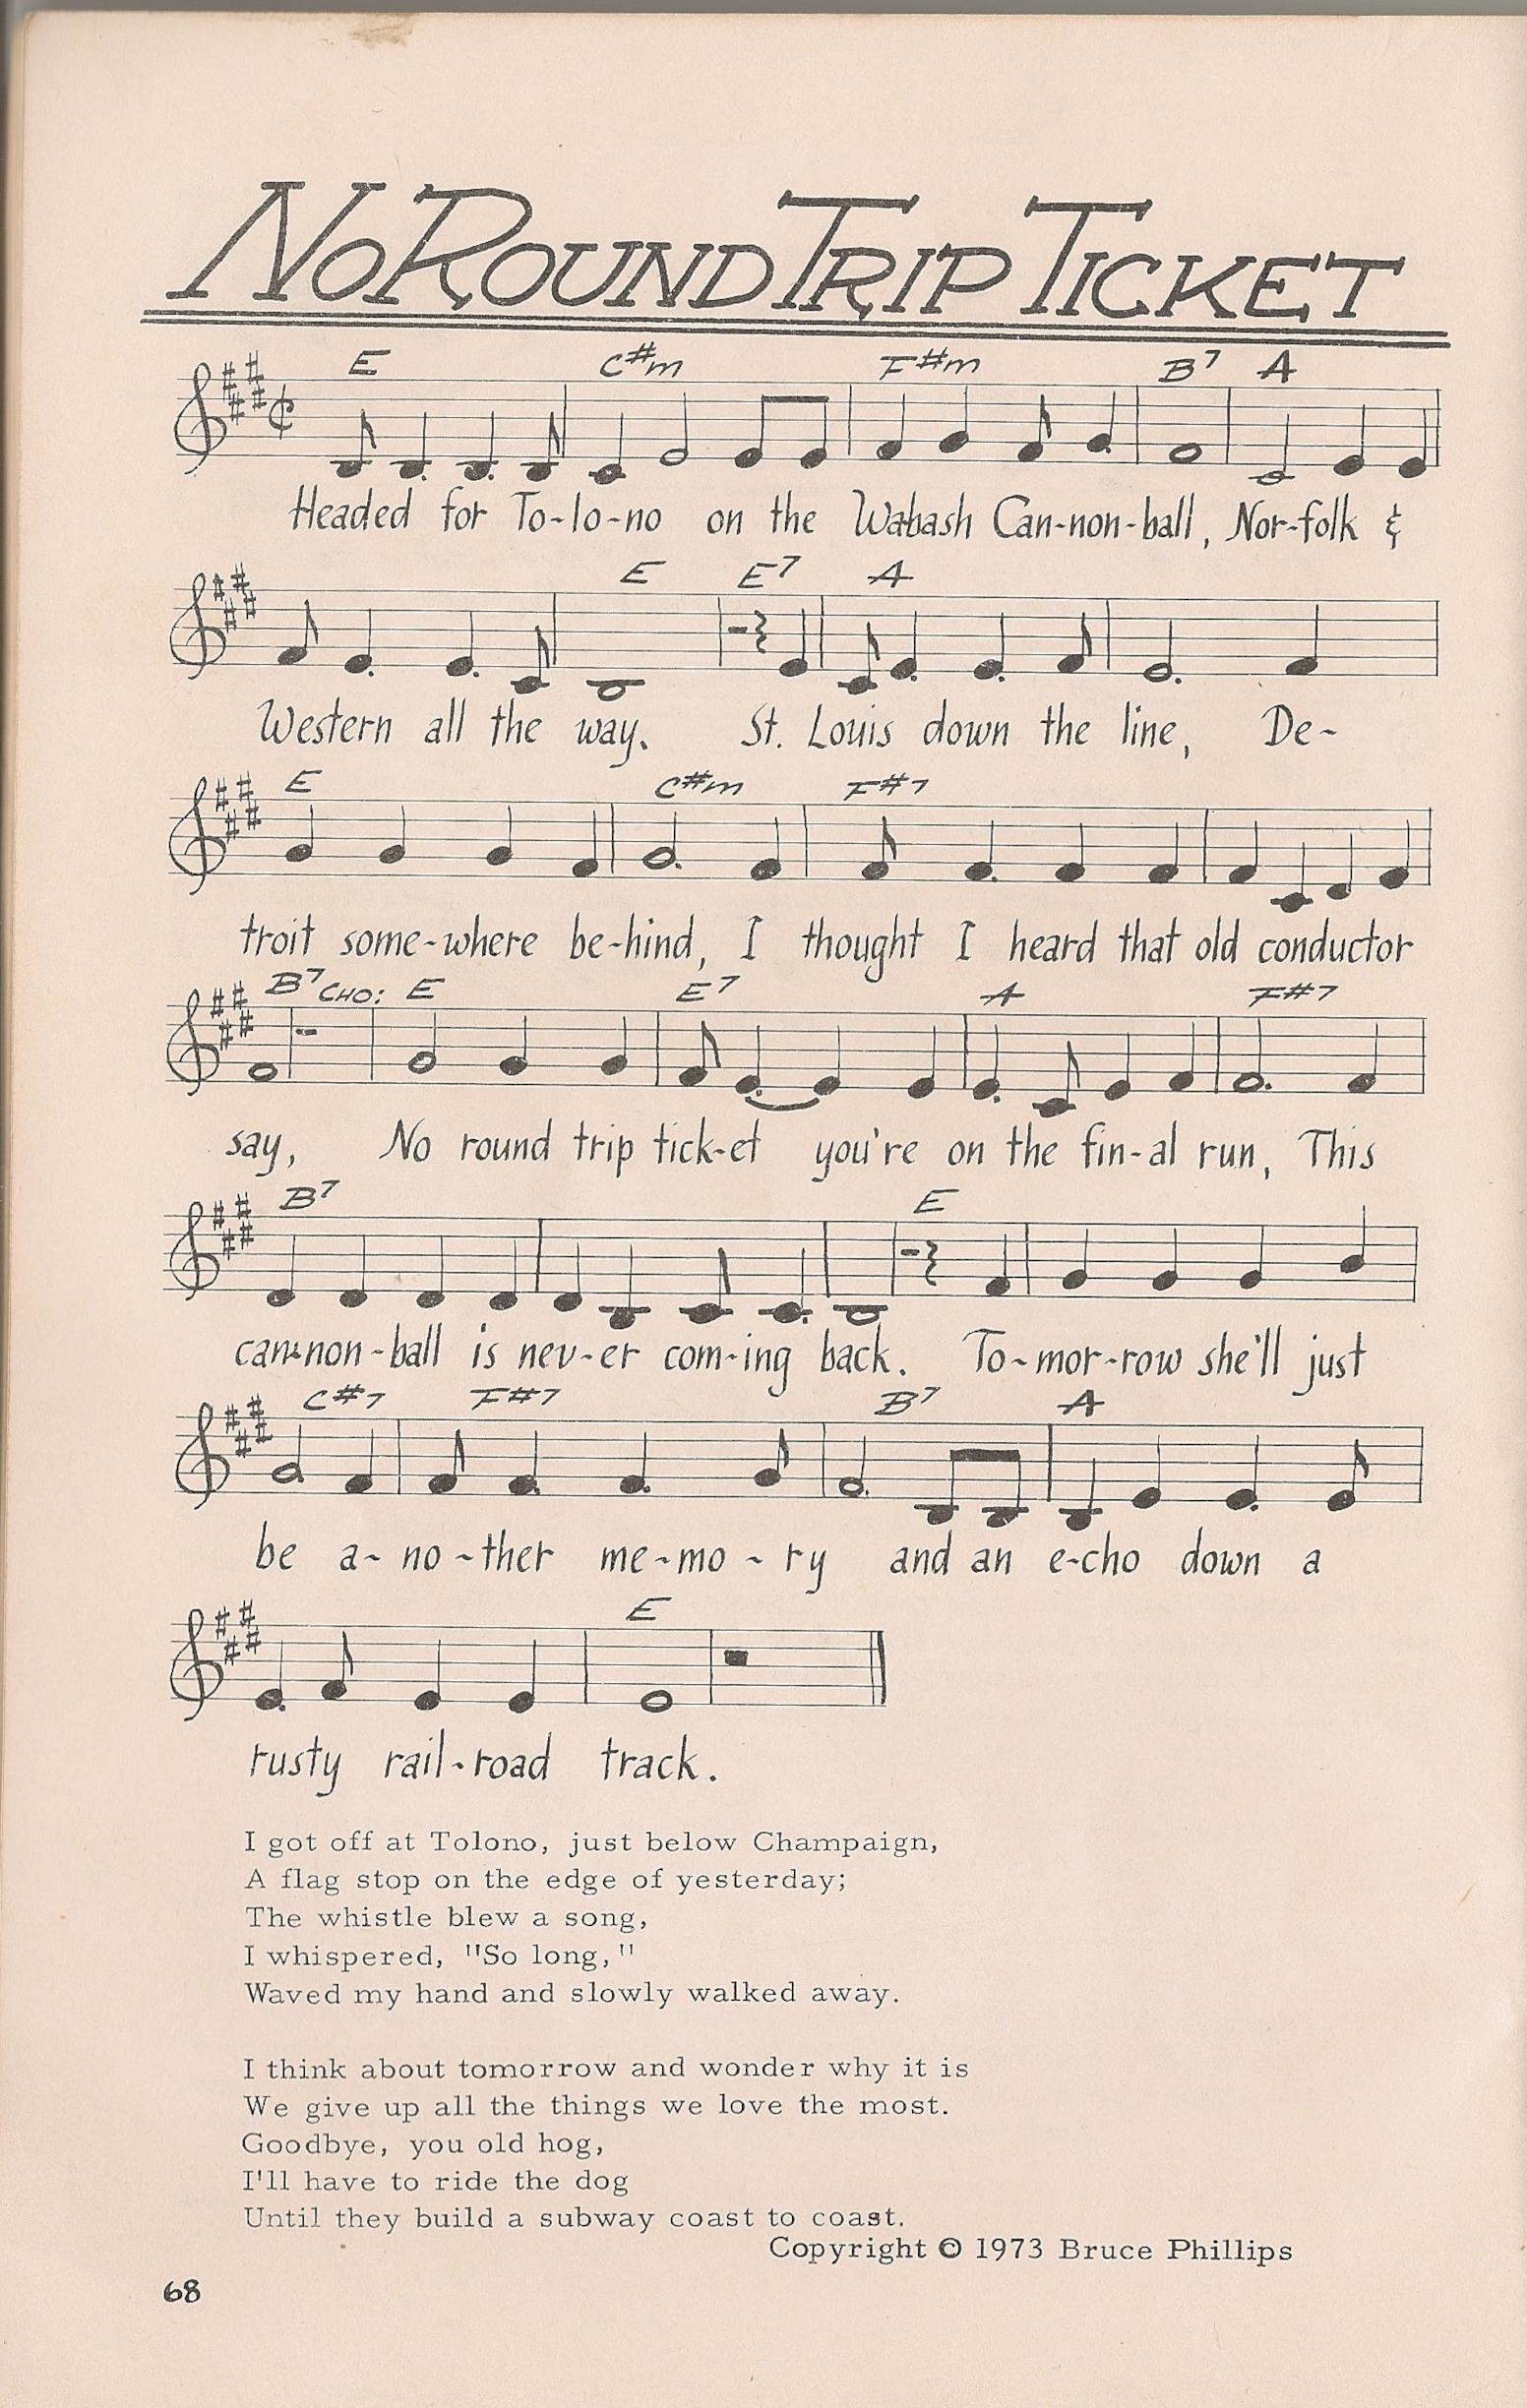 NO ROUND TRIP TICKET
E C#m F#m B7 A
Headed for To-lo-no on the Wabash Can-non-ball, Nor-folk &
E E7 A
Western all the way. St. Louis down the line, De-
E C#m F#7
troit some-where be-hind, I thought I heard that old conductor
B7 CHO: E E7 A F#7
say, No round trip tick-et you're on the fin-al run, This
B7 E
can-non-ball is nev-er com-ing back. To-mor-row she'll just
C#7 F#7 B7 A
be a-no-ther me-mo-ry and an e-cho down a
E
rusty rail-road track.
I got off at Tolono, just below Champaign,
A flag stop on the edge of yesterday;
The whistle blew a song,
I whispered, "So long,"
Waved my hand and slowly walked away.
I think about tomorrow and wonder why it is
We give up all the things we love the most.
Goodbye, you old hog,
I'll have to ride the dog
Until they build a subway coast to coast.
Copyright © 1973 Bruce Phillips
68